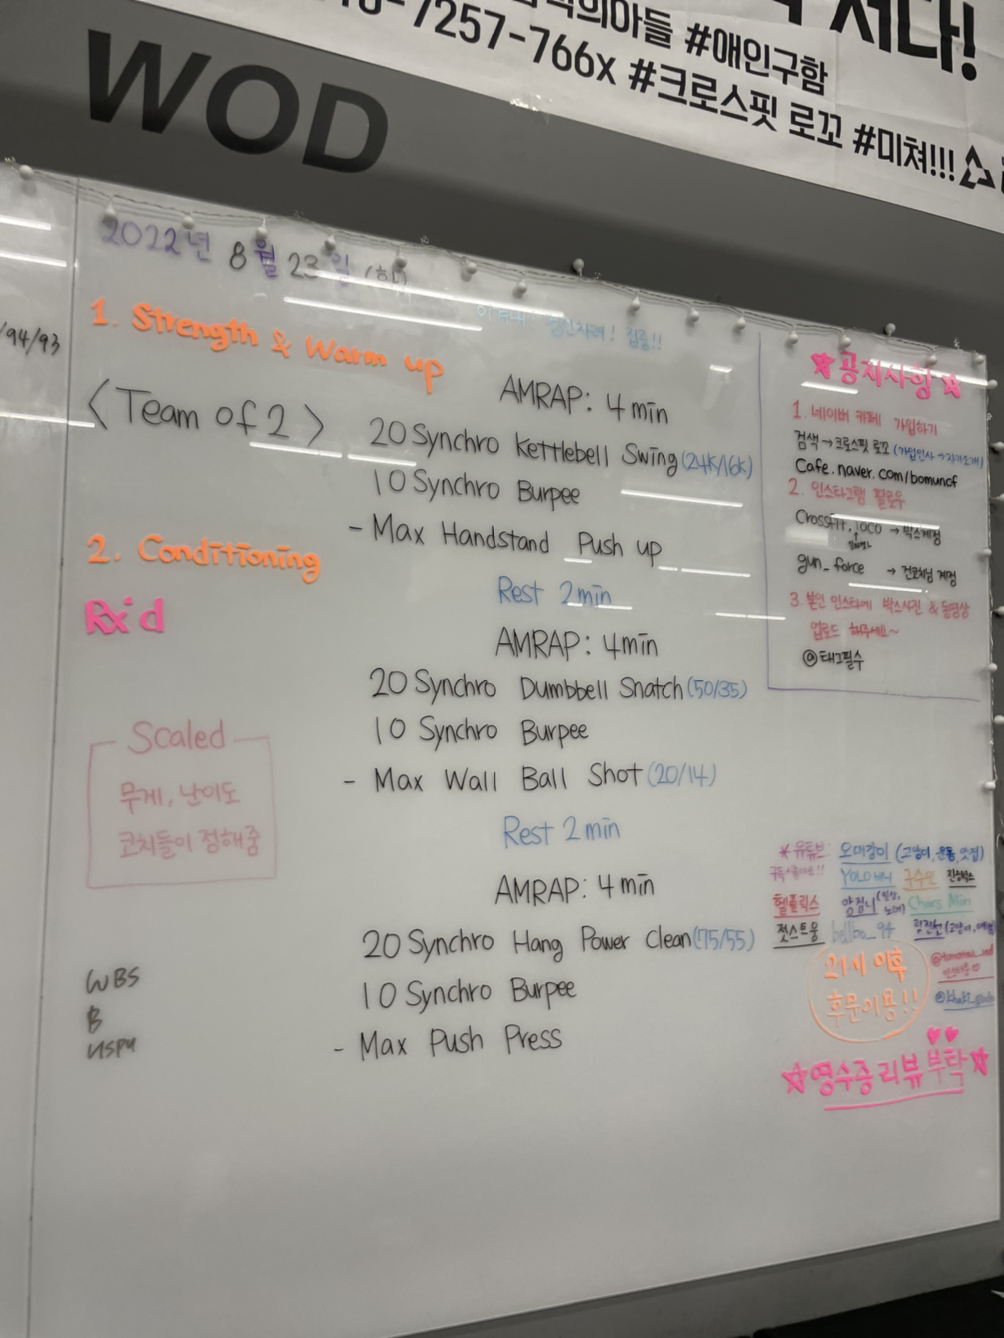 #애인구함
-7257-766x #크로스핏 로꼬 #미쳐!!!
WOD
2022년 8월 23일 (화)
/94/93
1. Strength & Warm up
집중!!
<Team of 2>
AMRAP: 4min
20 Synchro Kettlebell Swing (24K/16K)
10 Synchro Burpee
- Max Handstand Push up
2. Conditioning
Rest 2min
Rx'd
AMRAP: 4min
20 Synchro Dumbbell Snatch (50/35)
10 Synchro Burpee
- Max Wall Ball Shot (20/14)
Rest 2min
AMRAP: 4min
20 Synchro Hang Power Clean (75/55)
10 Synchro Burpee
- Max Push Press
Scaled
무게, 난이도
코치들이 정해줌
WBS
B
HSPU
☆공지사항☆
1. 네이버 카페 가입하기
검색→크로스핏 로꼬 (가입인사→자기소개)
Cafe.naver.com/bomuncf
2. 인스타그램 팔로우
Crossfit.loco → 박스계정
gun_force → 건코치님 계정
3. 본인 인스타에 박스사진 & 동영상
업로드 해주세요~
@태그필수
*유튜브: 오미강이 (고양이, 운동, 맛집)
헬플릭스
Chars Min
젓스트웅 bellbo_94
21시 이후
후문이용!!
☆영수증 리뷰 부탁☆